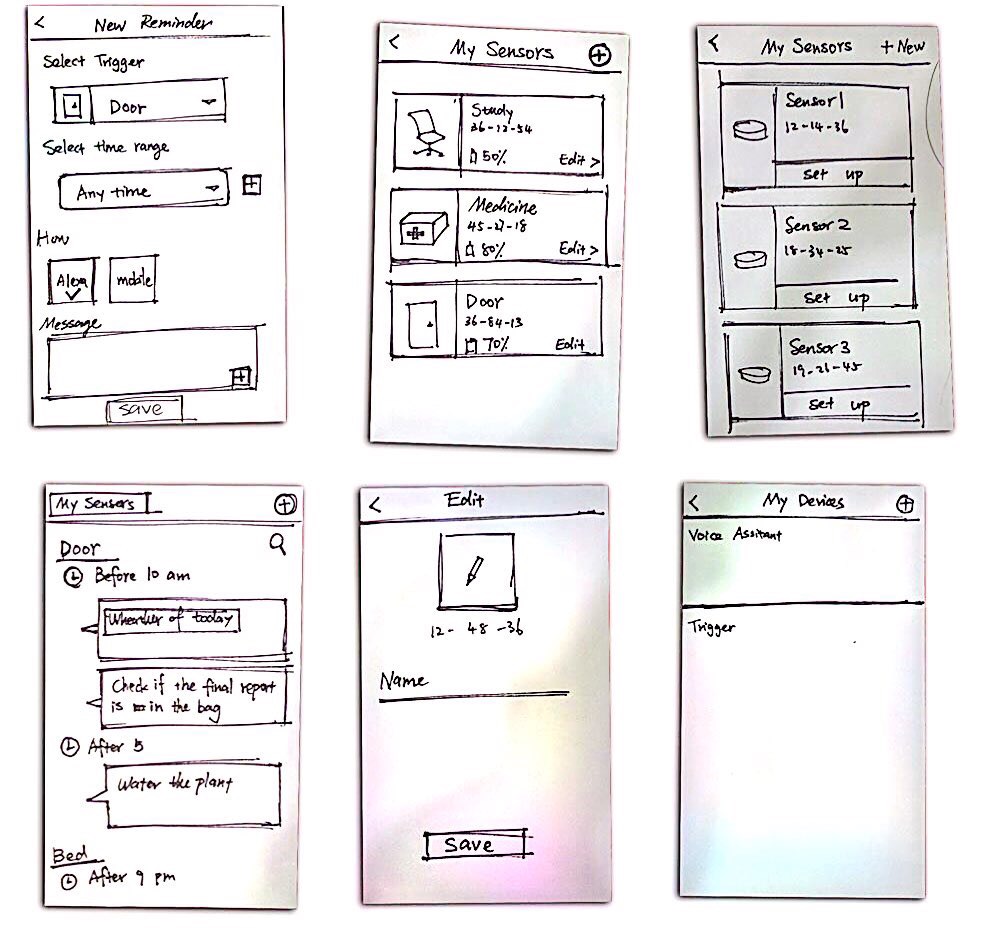 < New Reminder
Select Trigger
Door
Select time range
Any time +
How
Alexa mobile
Message
+
save
< My Sensors +
Study
36-12-54
50% Edit >
Medicine
45-27-18
80% Edit >
Door
36-84-13
70% Edit
< My Sensors + New
Sensor 1
12-14-36
set up
Sensor 2
18-34-25
set up
Sensor 3
19-21-45
set up
My Sensers +
Door
Before 10 am
of today
Check if the final report
is in the bag
After 5
Water the plant
Bed
After 9 pm
< Edit
12- 48 -36
Name
Save
< My Devices +
Voice Assitant
Trigger